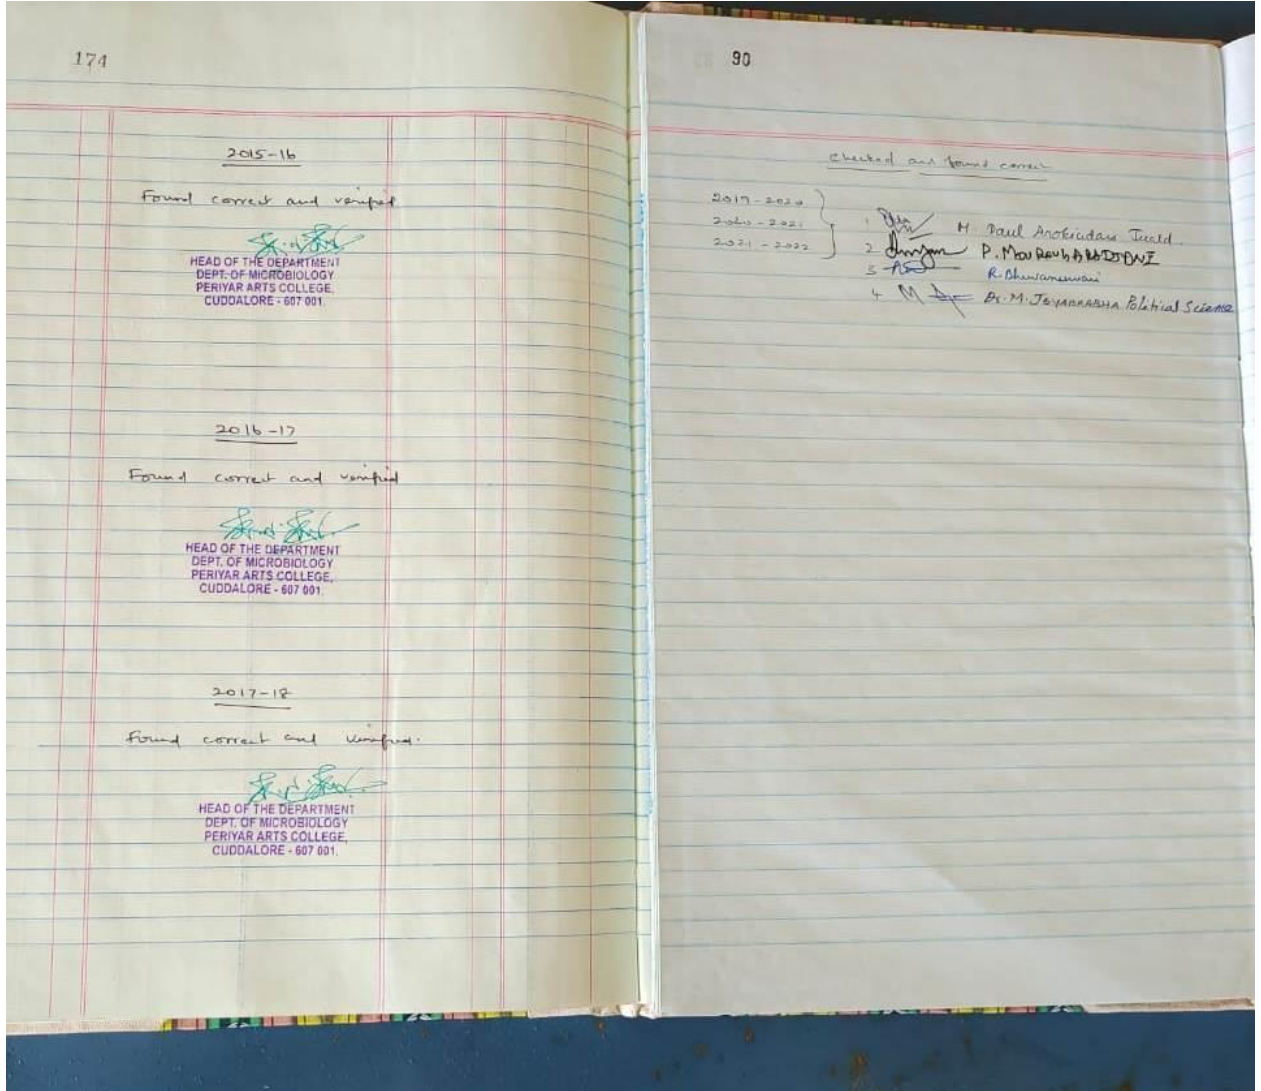 174
2015-16
Found correct and verified
HEAD OF THE DEPARTMENT
DEPT. OF MICROBIOLOGY
PERIYAR ARTS COLLEGE,
CUDDALORE - 607 001.
2016-17
Found correct and verified
HEAD OF THE DEPARTMENT
DEPT. OF MICROBIOLOGY
PERIYAR ARTS COLLEGE,
CUDDALORE - 607 001.
2017-18
Found correct and verified.
HEAD OF THE DEPARTMENT
DEPT. OF MICROBIOLOGY
PERIYAR ARTS COLLEGE,
CUDDALORE - 607 001.
90
Checked and found correct
2019-2020
2020-2021
2021-2022
1 M. Paul Arokiadass
2 P.
3 R. Bhuvaneswari
4 Dr. M. JEYAPRABHA Political Science